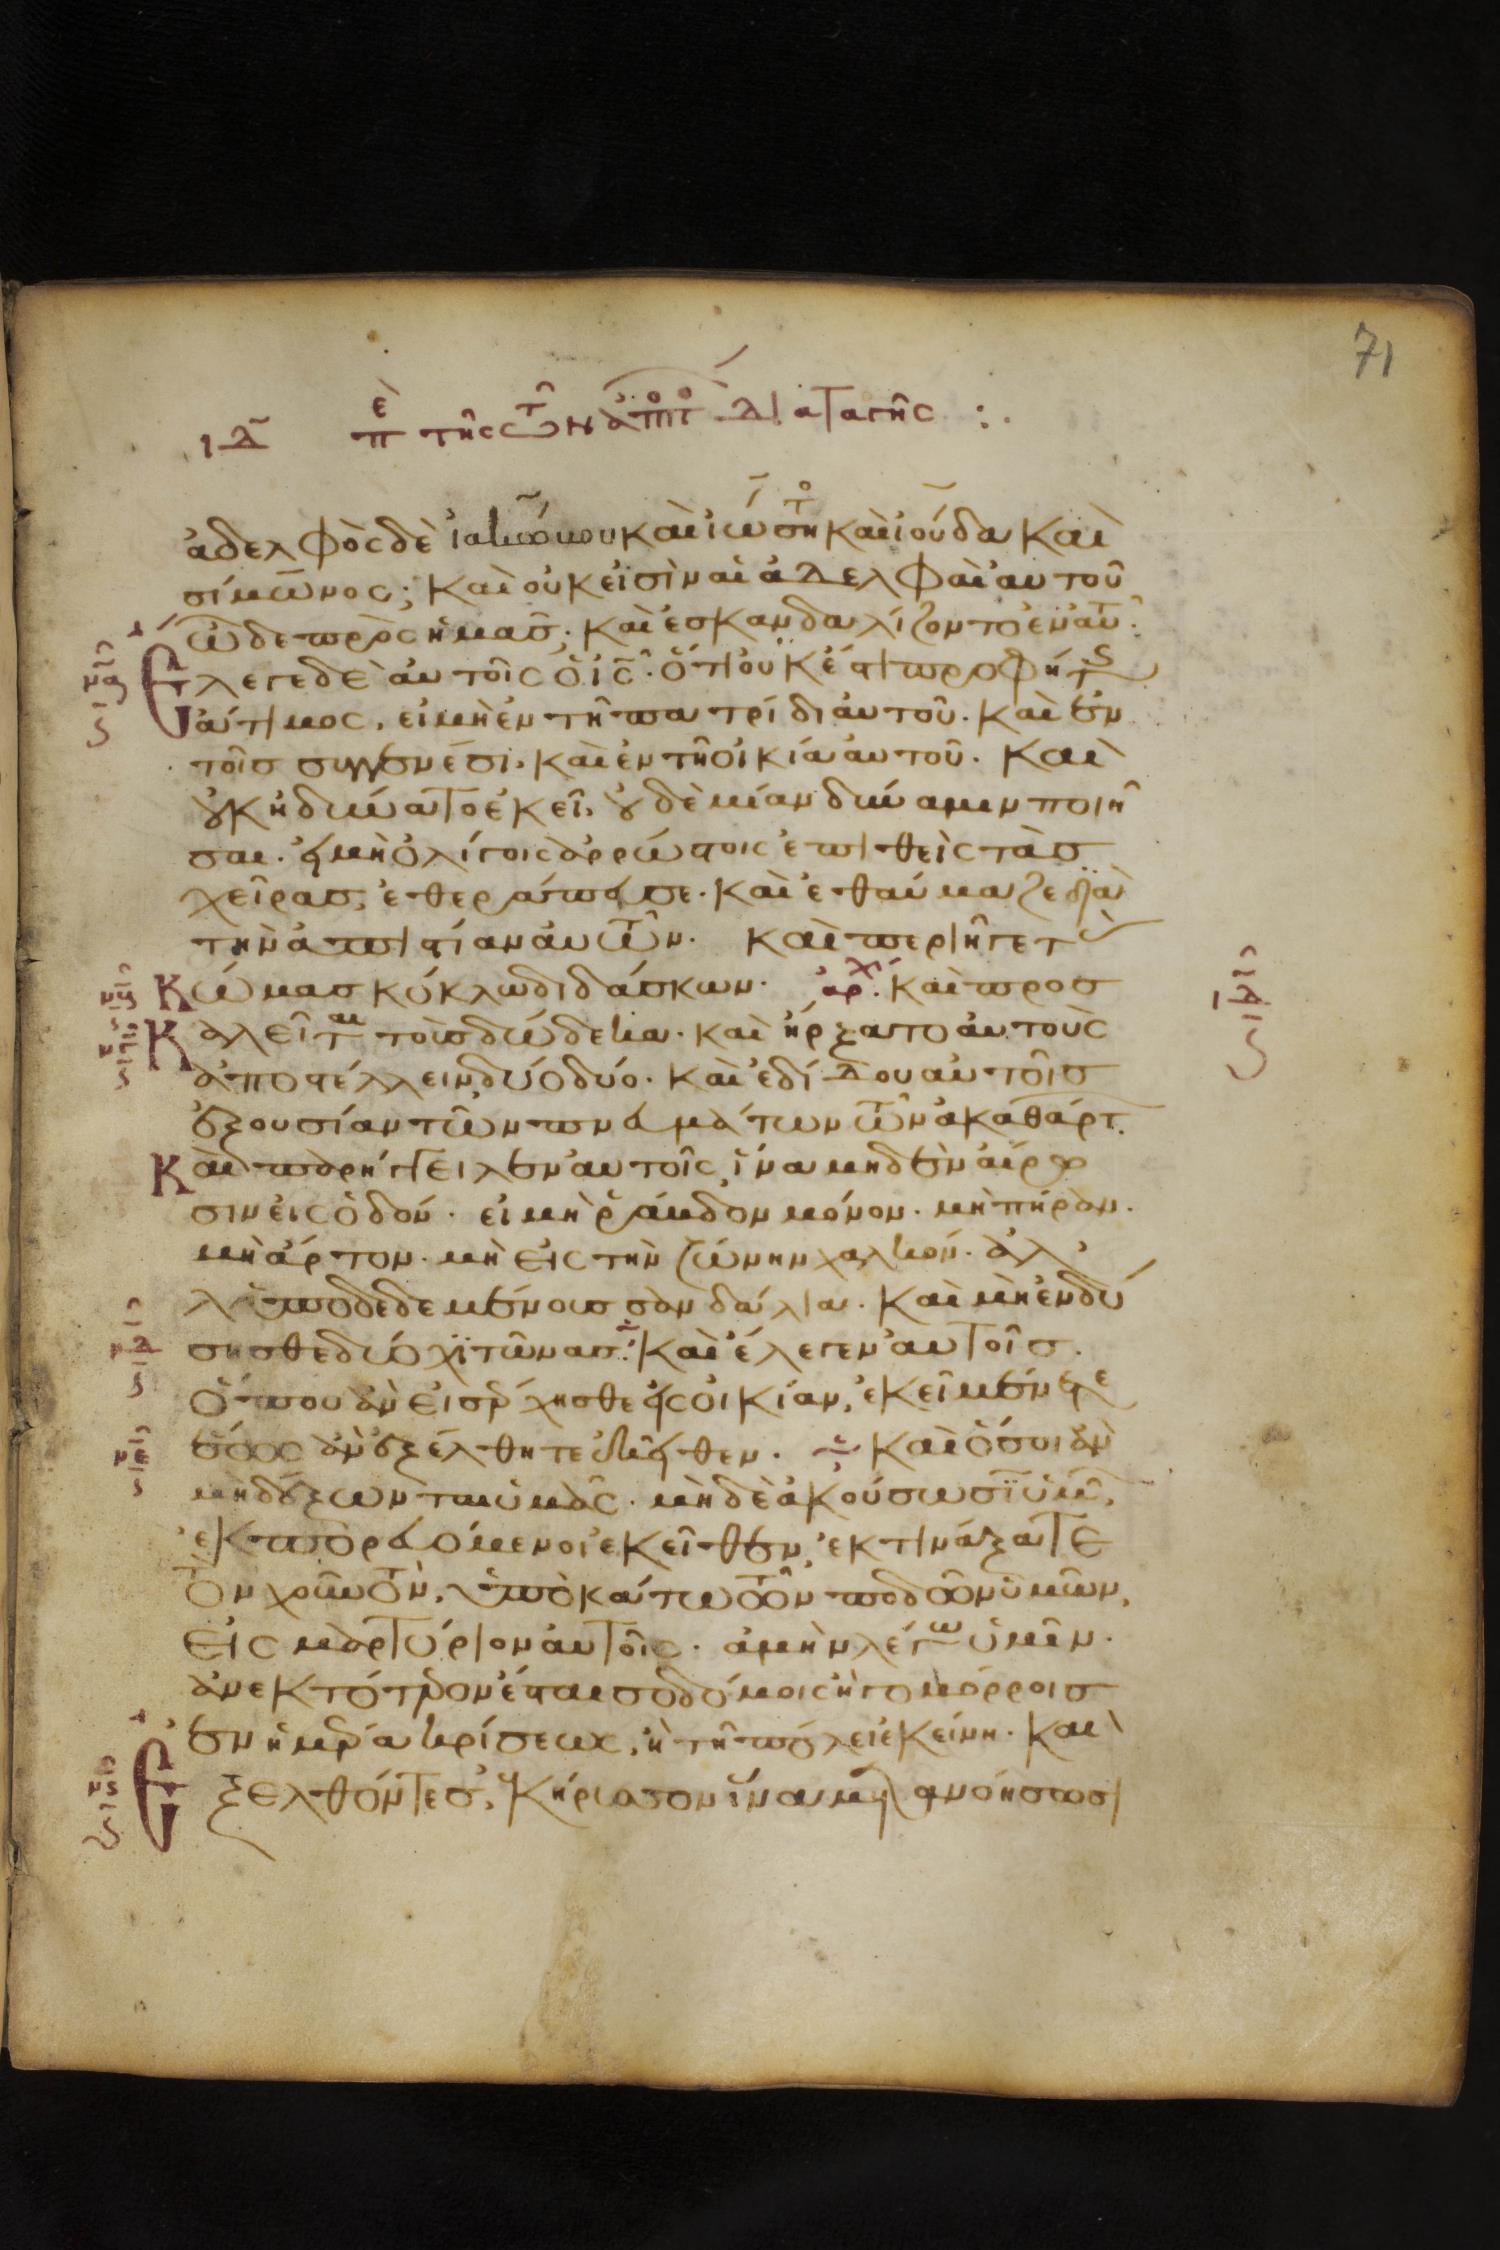 71
ιδ̅ πε τῆς τῶν ἀποστο διαταγῆς :.
ἀδελφὸς δὲ ἰακώβου καὶ ἰωσῆτο καὶ ἰούδα καὶ
σίμωνος; καὶ οὐκ εἰσὶν αἱ ἀδελφαὶ αὐτοῦ
ὧδε πρὸς ἡμᾶς; καὶ ἐσκανδαλίζοντο ἐν αὐτ
Ἔλεγε δὲ αὐτοῖς ὁ ἰς̅. ὅτι οὐκ ἔστι προφήτς
ἄτιμος, εἰ μὴ ἐν τῆ πατρίδι αὐτοῦ. καὶ ἐν
τοῖς συγγενέσι, καὶ ἐν τῆ οἰκία αὐτοῦ. καὶ
οὐκ ἠδύνατο ἐκεῖ, οὐδεμίαν δύναμιν ποιῆ
σαι. εἰ μὴ ὀλίγοις ἀρρώστοις ἐπιθεὶς τὰς
χεῖρας, ἐθεράπευσε. καὶ ἐθαύμαζε διὰ
τὴν ἀπιστίαν αὐτῶν. καὶ περιῆγε τὰς
Κώμας κύκλω διδάσκων. ἀρχ. καὶ προσ
Καλεῖται τοὺς δώδεκα. καὶ ἤρξατο αὐτοὺς
ἀποστέλλειν δύο δύο. καὶ ἐδίδου αὐτοῖς
ἐξουσίαν τῶν πνευμάτων τῶν ἀκαθάρτ.
Καὶ παρήγγειλεν αὐτοῖς, ἵνα μηδὲν αἴρω
σιν εἰς ὁδόν. εἰ μὴ ῥάβδον μόνον. μὴ πήραν.
μὴ ἄρτον. μὴ εἰς τὴν ζώνην χαλκόν. ἀλ
λ' ὑποδεδεμένους σανδάλια. καὶ μὴ ἐνδύ
σησθε δύο χιτῶνας. καὶ ἔλεγεν αὐτοῖς.
Ὅπου ἂν εἰσέρχησθε εἰς οἰκίαν, ἐκεῖ μένετε
ἕως ἂν ἐξέλθητε ἐκεῖθεν. καὶ ὅσοι ἂν
μὴ δέξωνται ὑμᾶς. μηδὲ ἀκούσωσιν ὑμῶ,
ἐκπορευόμενοι ἐκεῖθεν, ἐκτινάξατε
τὸν χοῦν τὸν, ὑποκάτω τῶν ποδῶν ὑμῶν,
εἰς μαρτύριον αὐτοῖς. ἀμὴν λέγω ὑμῖν.
ἀνεκτότερον ἔσται σοδόμοις ἢ γομόρροις
ἐν ἡμέρα κρίσεως, ἢ τῆ πόλει ἐκείνη. καὶ
Ἐξελθόντες, ἐκήρυσσον ἵνα μετανοήσωσι
ν̅α
ν̅γ
ν̅δ
ν̅ε
ν̅ς
ι̅δ